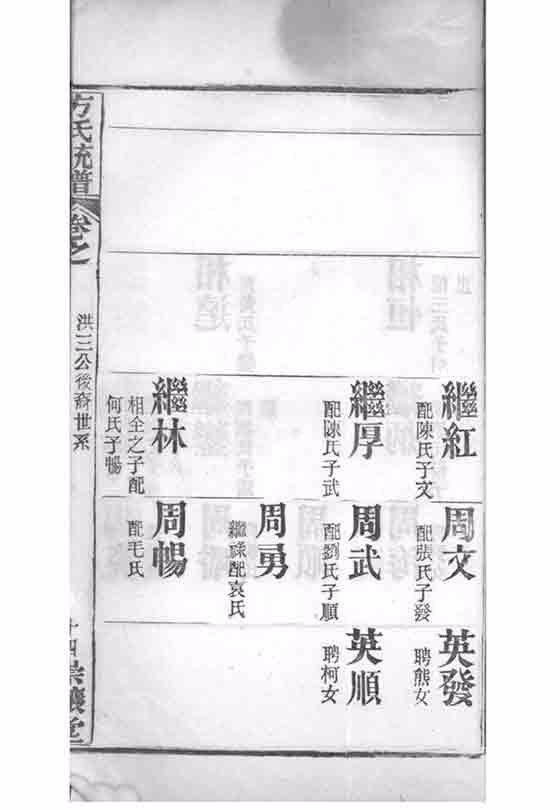 繼紅
配陳氏子文
繼厚
配陳氏子武
繼林
相全之子配
何氏子暢
周文
配張氏子發
周武
配劉氏子順
周勇
配袁氏
周暢
配毛氏
英發
聘熊女
英順
聘柯女
方氏統譜
卷之
洪三公後裔世系
十四
堂